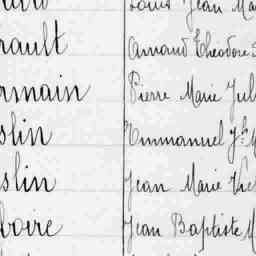 Louis Jean Ma
rault Arnaud Théodore
rmain Pierre Marie Jul
slin Emmanuel Jh M
slin Jean Marie Vic
boire Jean Baptiste M